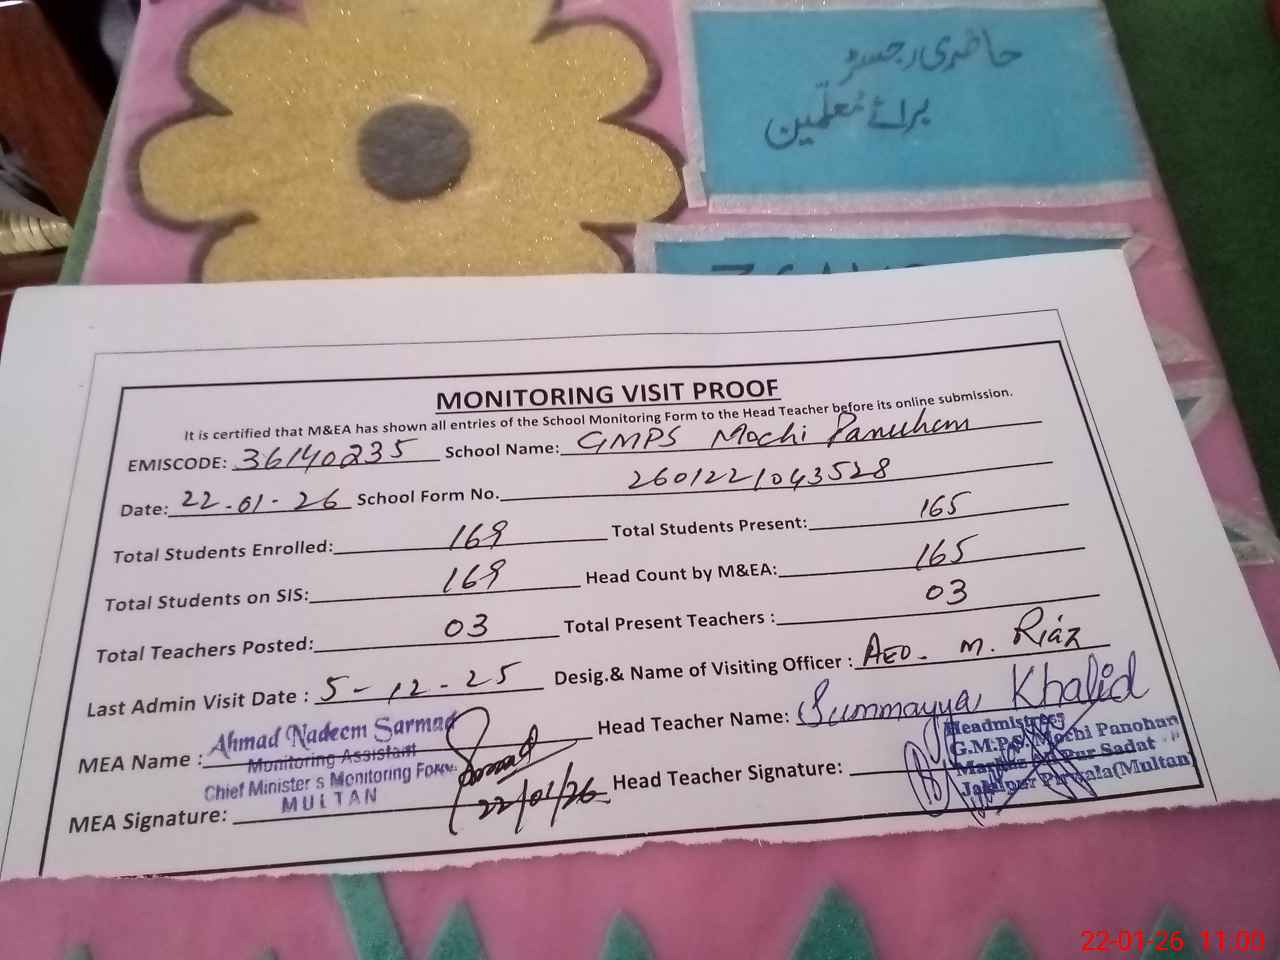 حاضری رجسٹر
برائے معلّمین
MONITORING VISIT PROOF
It is certified that M&EA has shown all entries of the School Monitoring Form to the Head Teacher before its online submission.
EMISCODE: 36140235 School Name: GMPS Mochi Panuhan
Date: 22-01-26 School Form No. 2601221043528
Total Students Enrolled: 169 Total Students Present: 165
Total Students on SIS: 169 Head Count by M&EA: 165
Total Teachers Posted: 03 Total Present Teachers : 03
Last Admin Visit Date : 5-12-25 Desig.& Name of Visiting Officer : AEO. M. Riaz
MEA Name : Ahmad Nadeem Sarmad Head Teacher Name: Summayya Khalid
Monitoring Assistant
Chief Minister s Monitoring Force
MULTAN
MEA Signature: 22/01/26 Head Teacher Signature:
Headmistress
G.M.P.S. Mochi Panohan
Pur Sadat
Jalalpur Pirwala(Multan)
22-01-26 11:00